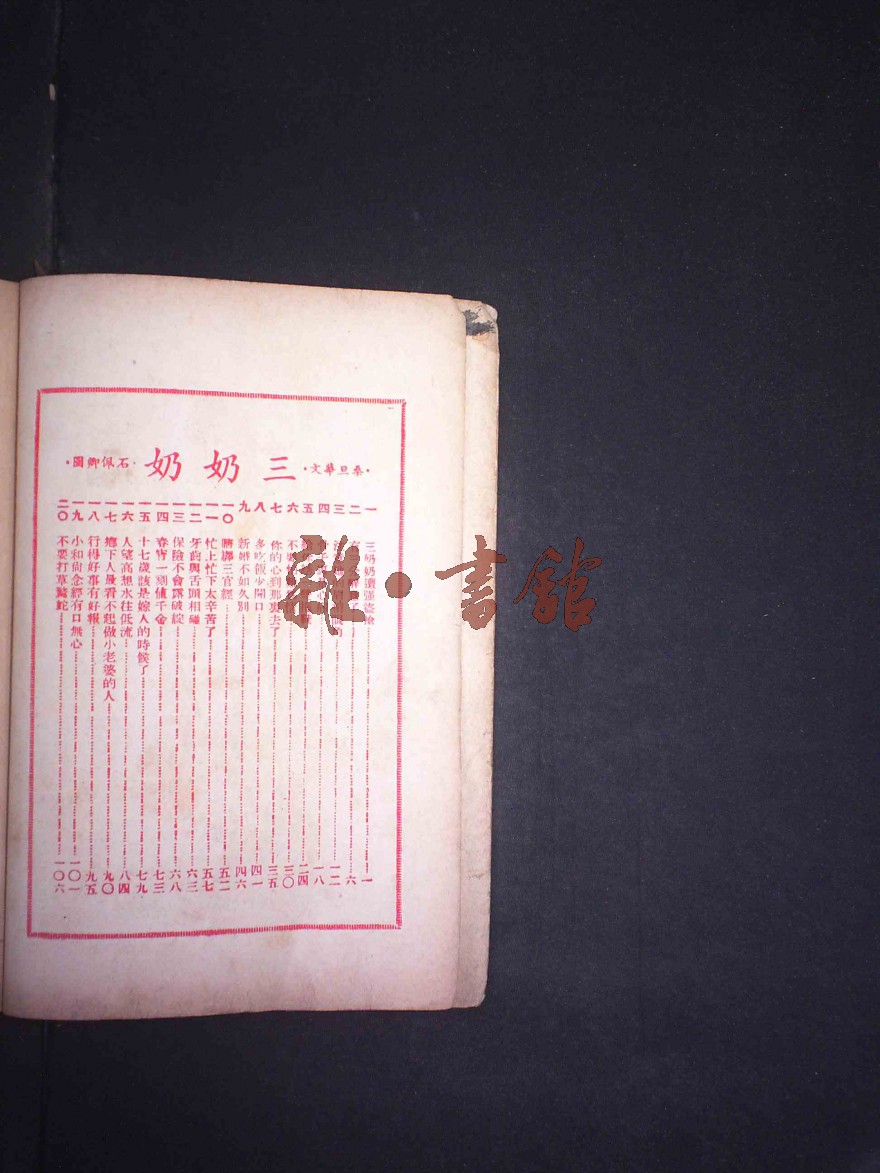 三奶奶
·桑旦華文·
·石佩卿圖·
一 三奶奶遭強盜搶 一
二 六
三 一二
四 一八
五 二四
六 三〇
七 你的心到那裏去了 三五
八 多吃飯少開口 四一
九 新婚不如久別 四六
一〇 臍挪三官經 五二
一一 忙上忙下太辛苦了 五七
一二 牙齒與舌頭相碰 六三
一三 保險不會露破綻 六八
一四 春宵一刻値千金 七三
一五 十七歲該是嫁人的時候了 七九
一六 人望高想水往低流 八四
一七 鄉下人最看不起做小老婆的人 九〇
一八 行得好事有好報 九五
一九 小和尙念經有口無心 一〇一
二〇 不要打草驚蛇 一〇六
雜·書館